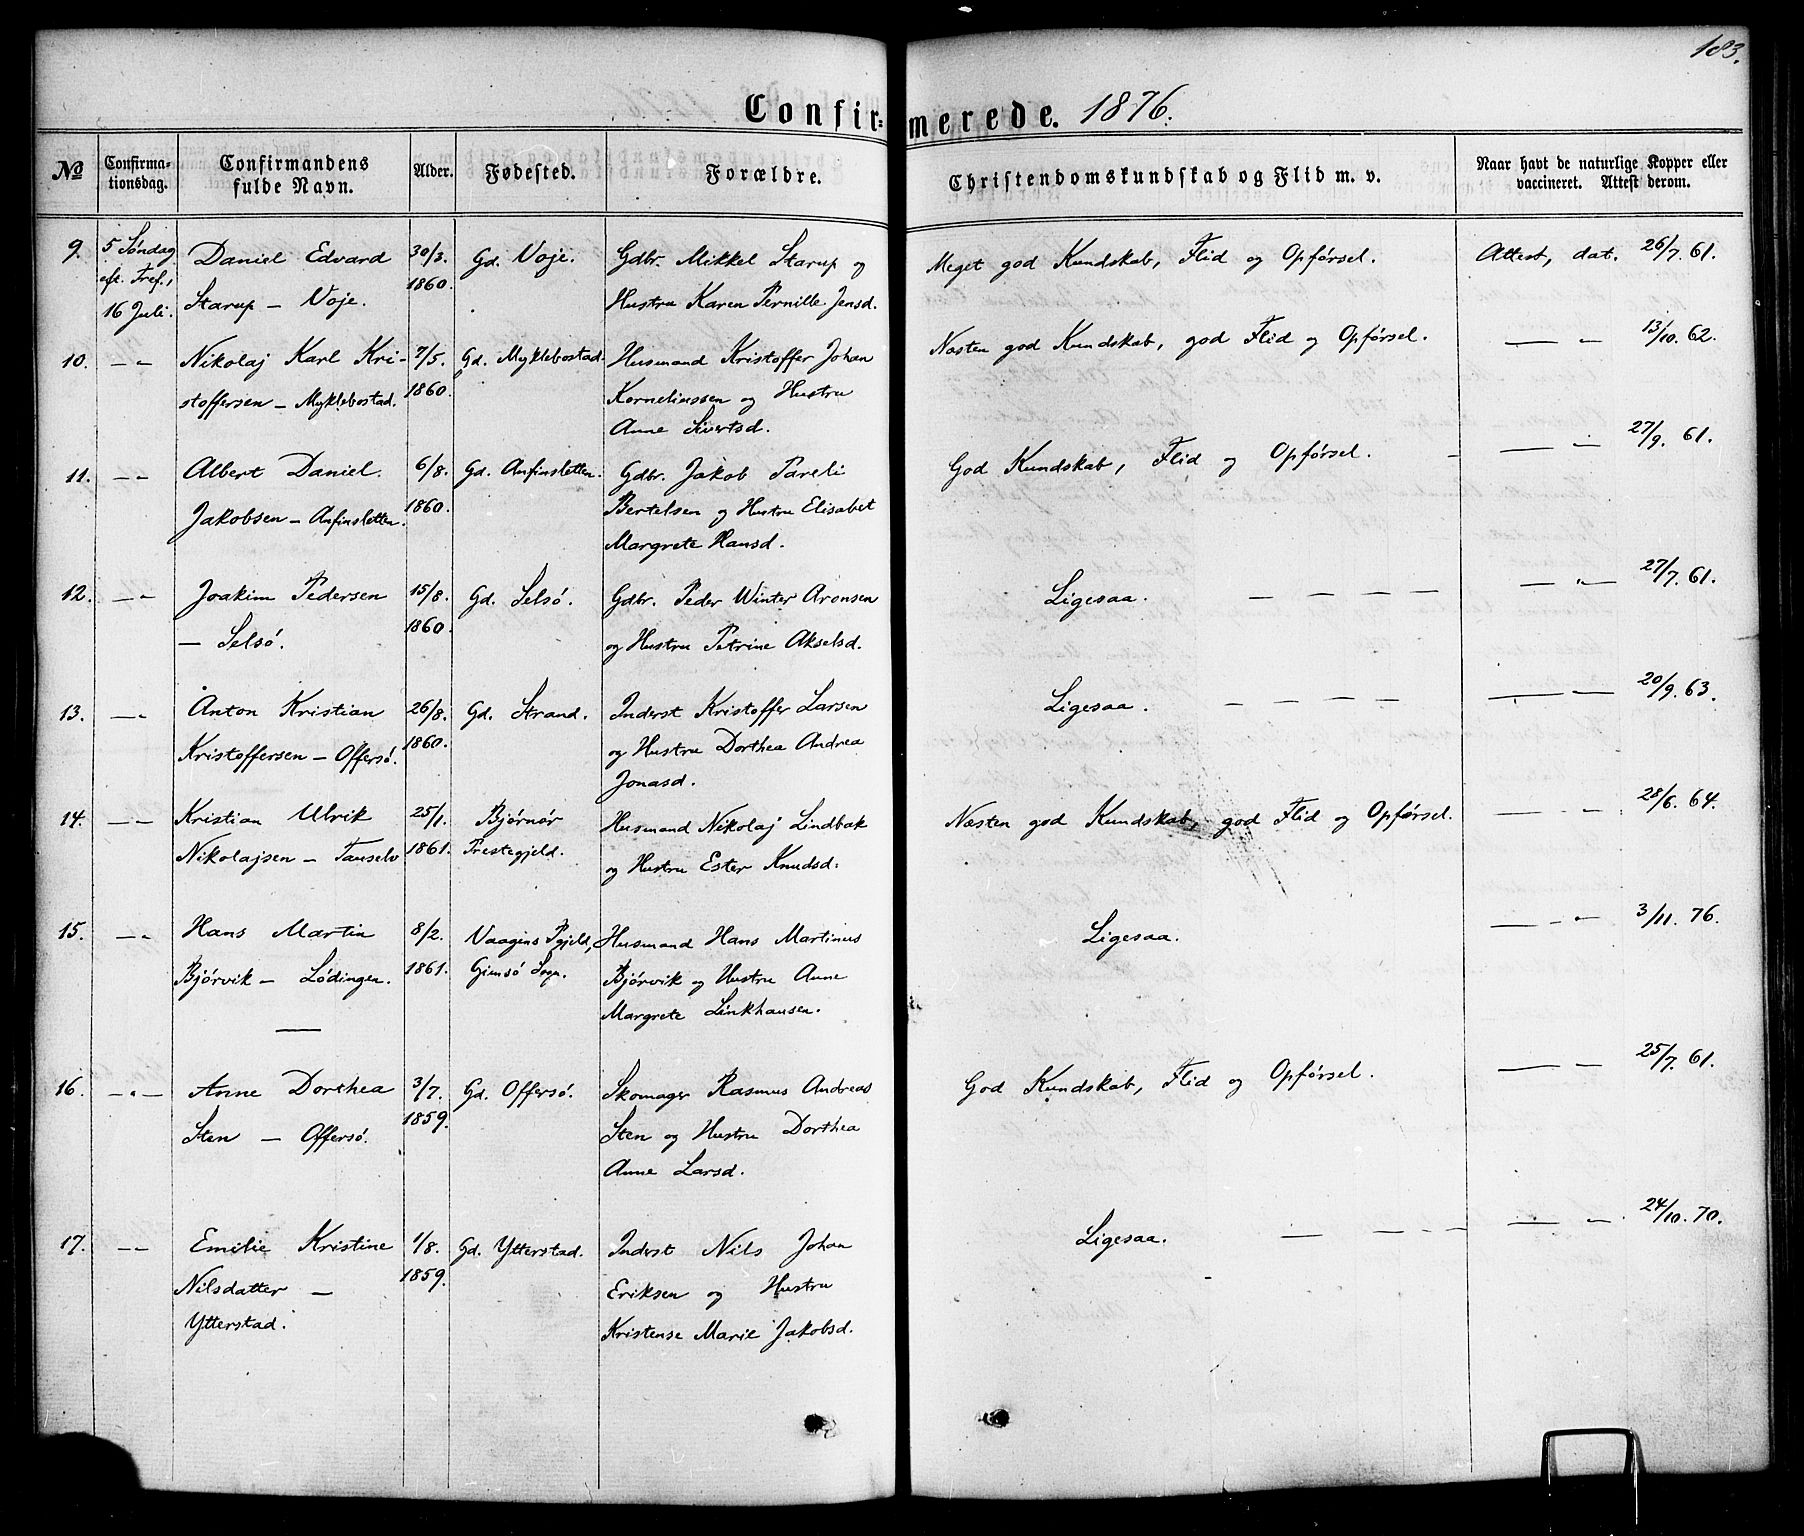 183.
Confirmerede. 1876.
No
Confirmationsdag.
Confirmandens fulde Navn.
Alder.
Fødested.
Forældre.
Christendomskundskab og Flid m. v.
Naar havt de naturlige Kopper eller vaccineret. Attest derom.
9. 5. Søndag Daniel Edvard 30/3. Gd. Voje. Gdbr. Mikkel Starup og Meget god Kundskab, Flid og Opførsel. Attest, dat. 26/7. 61.
eft. Tref., Starup – Voje. 1860. Hustru Karen Pernille Jensd.
16 Juli.
10. — „ Nikolaj Karl Kri- 7/5. Gd. Myklebostad. Husmand Kristoffer Johan Næsten god Kundskab, god Flid og Opførsel. — „ 13/10. 62.
stoffersen – Myklebostad. 1860. Korneliussen og Hustru
Anne Sivertsd.
11. — „ Albert Daniel 6/8. Gd. Anfinsletten. Gdbr. Jakob Pareli God Kundskab, Flid og Opførsel. — „ 27/9. 61.
Jakobsen – Anfinsletten. 1860. Bertelsen og Hustru Elisabet
Margrete Hansd.
12. — „ Joakim Pedersen 15/8. Gd. Selsø. Gdbr. Peder Winter Aronsen Ligesaa. — — — — — „ — 27/7. 61.
— Selsø. 1860. og Hustru Petrine Akselsd.
13. — „ Anton Kristian 26/8. Gd. Strand. Inderst Kristoffer Larsen Ligesaa. — — — — — — 20/9. 63.
Kristoffersen – Offersø. 1860. og Hustru Dorthea Andrea
Jonasd.
14. — „ Kristian Ulrik 25/1. Bjørnør Husmand Nikolaj Lindbak Næsten god Kundskab, god Flid og Opførsel. — „ 28/6. 64.
Nikolajsen – Tauselv 1861. Prestegjeld. og Hustru Ester Knudsd.
15. — „ Hans Martin 8/2. Vaagens Pgjeld, Husmand Hans Martinus Ligesaa. — „ 3/11. 76.
Bjørvik – Lødingen. 1861. Gimsø Sogn. Bjørvik og Hustru Anne
Margrete Linkhausen.
—
16. — „ — Anne Dorthea 3/7. Gd. Offersø. Skomager Rasmus Andreas God Kundskab, Flid og Opførsel. — — 25/7. 61.
Sten – Offersø. 1859. Sten og Hustru Dorthea
Anne Larsd.
17. — „ Emilie Kristine 1/8. Gd. Ytterstad. Inderst Nils Johan Ligesaa. — — — — — „ 24/10. 70.
Nilsdatter – 1859. Eriksen og Hustru
Ytterstad. Kristense Marie Jakobsd.